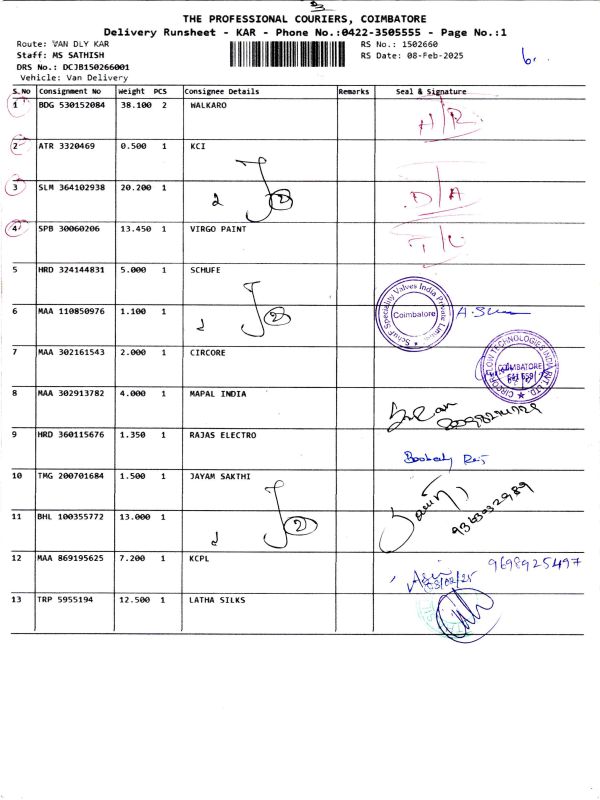 THE PROFESSIONAL COURIERS, COIMBATORE
Delivery Runsheet - KAR - Phone No.:0422-3505555 - Page No.:1
Route: VAN DLY KAR
RS No.: 1502660
Staff: MS SATHISH
RS Date: 08-Feb-2025
DRS No.: DCJB150266001
Vehicle: Van Delivery
S.No Consignment No Weight PCS Consignee Details Remarks Seal & Signature
1 BDG 530152084 38.100 2 WALKARO H/R
2 ATR 3320469 0.500 1 KCI
3 SLM 364102938 20.200 1 D/A
4 SPB 30060206 13.450 1 VIRGO PAINT
5 HRD 324144831 5.000 1 SCHUFE
6 MAA 110850976 1.100 1
Schuf Speciality Valves India Private Limited
Coimbatore
7 MAA 302161543 2.000 1 CIRCORE
CIRCOR FLOW TECHNOLOGIES INDIA PVT. LTD.
COIMBATORE
8 MAA 302913782 4.000 1 MAPAL INDIA
9 HRD 360115676 1.350 1 RAJAS ELECTRO
10 TMG 200701684 1.500 1 JAYAM SAKTHI
9363032989
11 BHL 100355772 13.000 1
12 MAA 869195625 7.200 1 KCPL 9698925497
13 TRP 5955194 12.500 1 LATHA SILKS